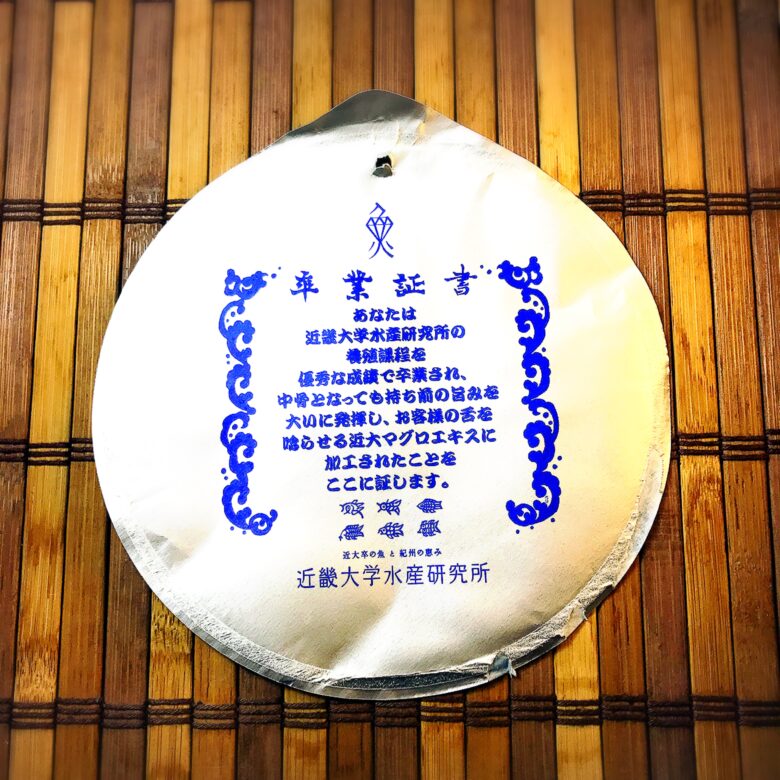 魚
卒業証書
あなたは
近畿大学水産研究所の
養殖課程を
優秀な成績で卒業され、
中骨となっても持ち前の旨みを
大いに発揮し、お客様の舌を
唸らせる近大マグロエキスに
加工されたことを
ここに証します。
近大卒の魚と紀州の恵み
近畿大学水産研究所